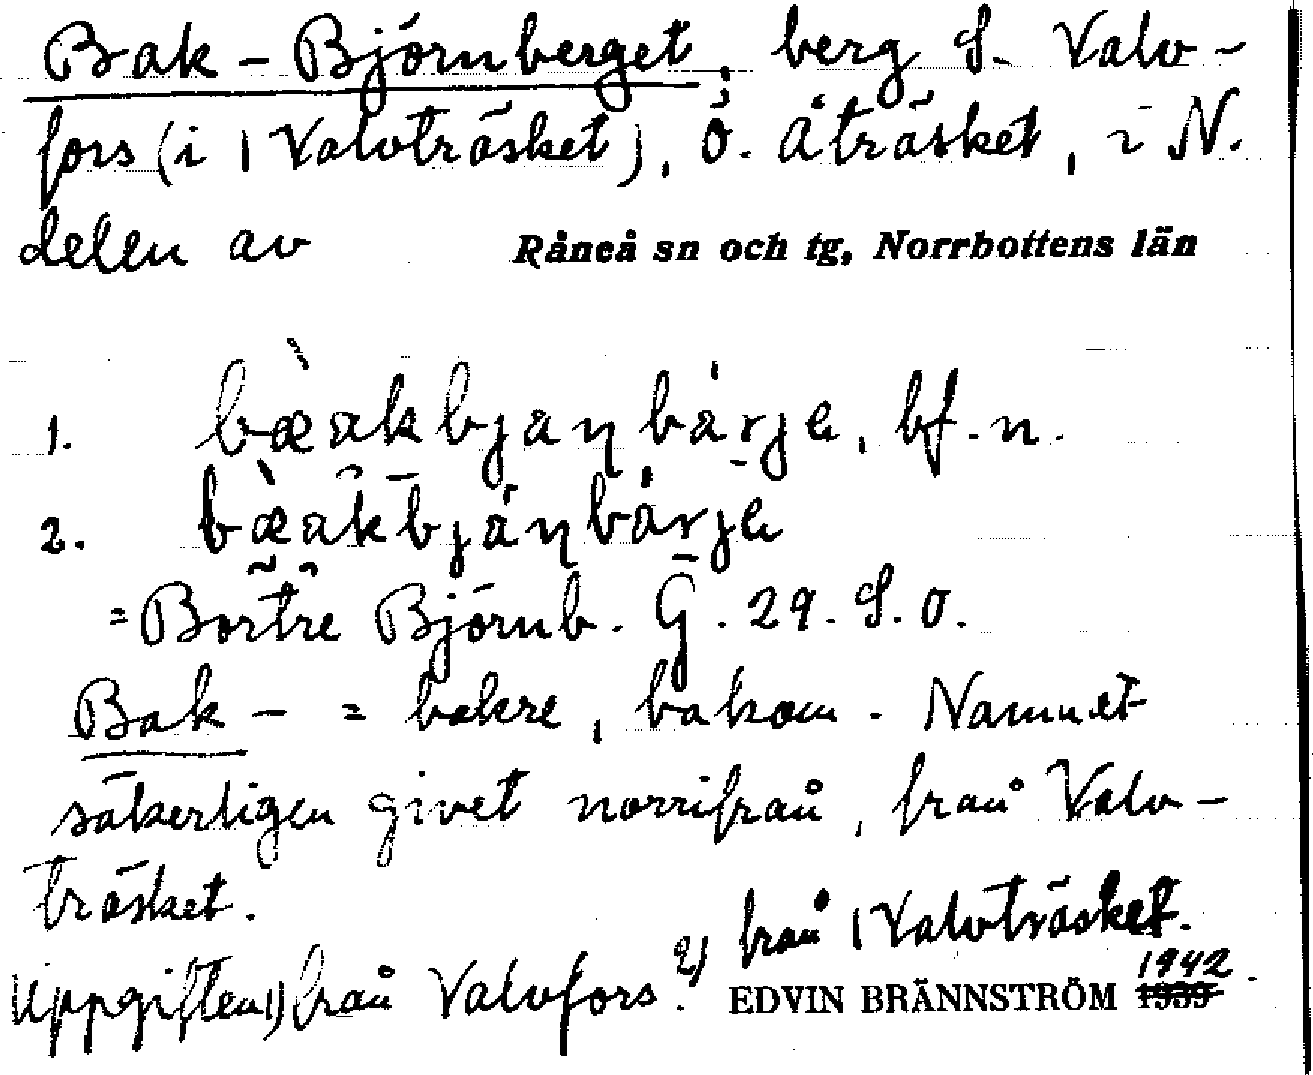 Bak-Björnberget, berg S. Valv-
fors (i | Valvträsket), ö. Åträsket, i N.
delen av Råneå sn och tg, Norrbottens län
1. bæ̀akbjaɳbárje, bf. n.
2. bæ̀akbjáɳbárje
= Bortre Björnb. G. 29. S. O.
Bak- = bakre, bakom. Namnet
säkerligen givet norrifrån, från Valv-
träsket.
Uppgiften 1) från Valvfors. 2) från | Valvträsket.
EDVIN BRÄNNSTRÖM 1939 1942.